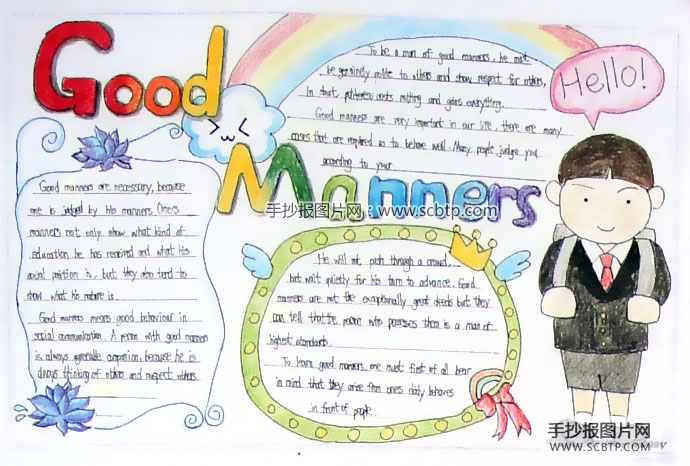 Good
Manners
Hello!
To be a man of good manners, he must
be genuinely polite to others and show respect for others,
In fact, politeness costs nothing and gains everything.
Good manners are very important in our life, there are many
cases that are required us to behave well. Many people judge you
according to your
手抄报图片网:www.scbtp.com
Good manners are necessary, because
one is judged by his manners. One's
manners not only show what kind of
education he has received and what his
social position is, but they also tend to
show what his nature is.
Good manners means good behaviour in
social communication. A person with good manners
is always agreeable companion, because he is
always thinking of others and respect others
He will not push through a crowd
but wait quietly for his turn to advance. Good
manners are not the exceptionally great deeds but they
can tell that the person who possesses them is a man of
highest standards.
To learn good manners, one must first of all bear
in mind that they arise from one's daily behaves
in front of people.
手抄报图片网
WWW.SCBTP.COM